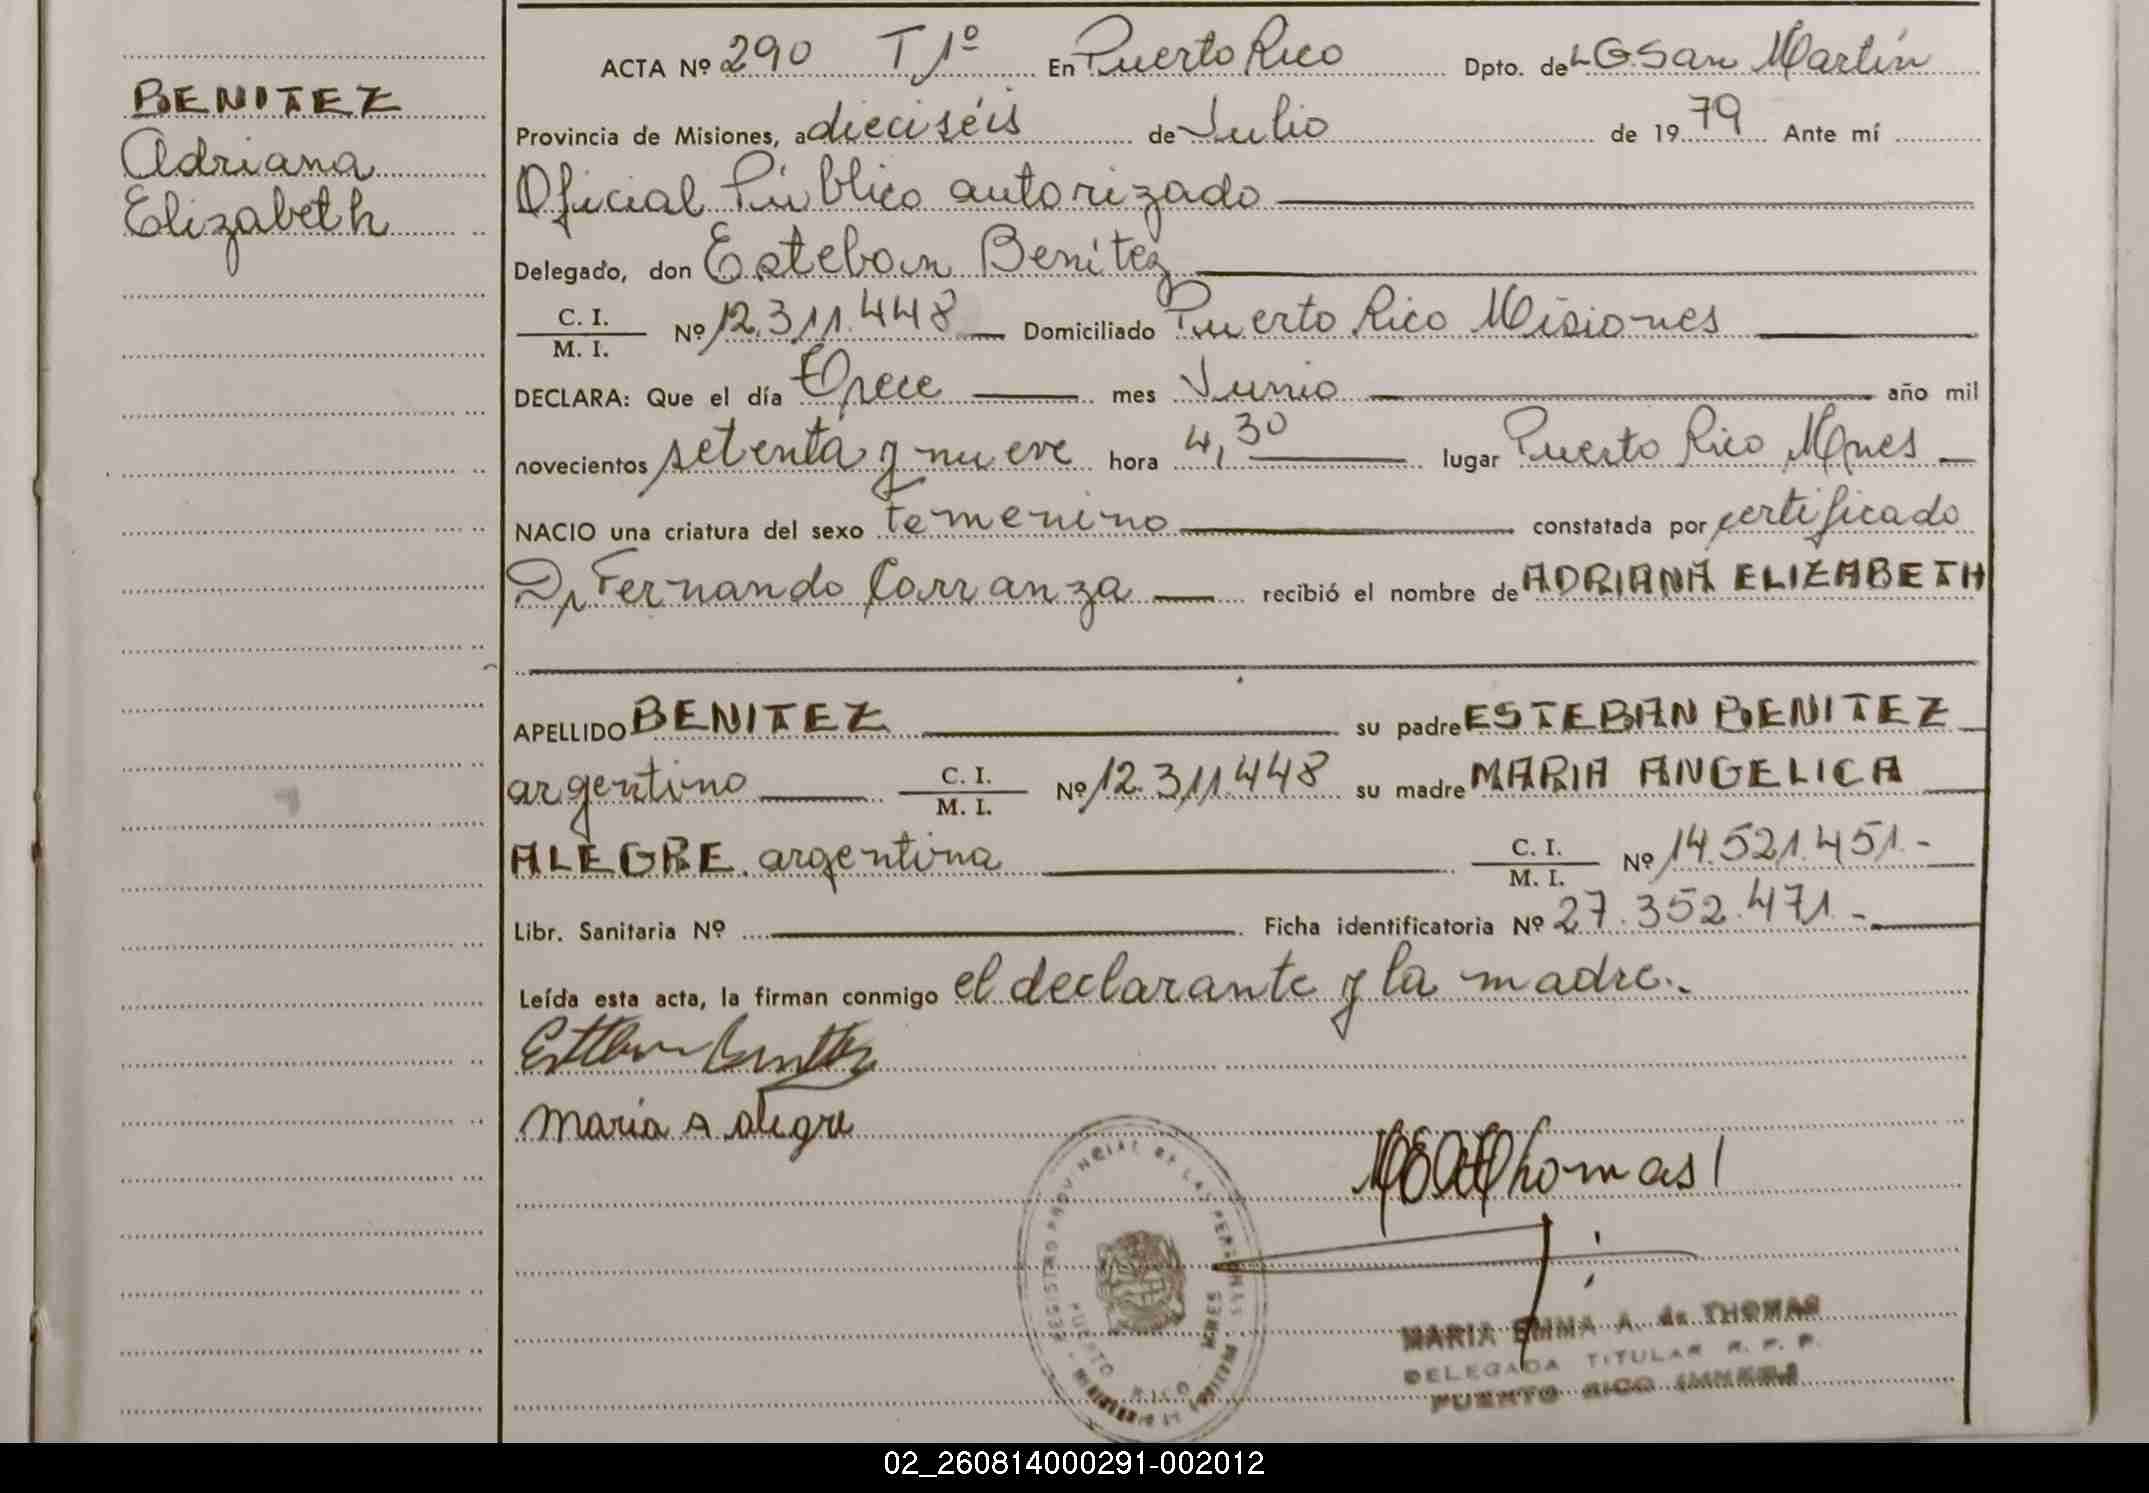 BENITEZ
Adriana
Elizabeth
ACTA Nº 290 T 1º En Puerto Rico Dpto. de LG San Martín
Provincia de Misiones, a dieciséis de Julio de 1979 Ante mí
Oficial Público autorizado
Delegado, don Esteban Benítez
C. I.
M. I. Nº 12.311.448 Domiciliado Puerto Rico Misiones
DECLARA: Que el día Trece mes Junio año mil
novecientos setenta y nueve hora 4,30 lugar Puerto Rico Mnes
NACIO una criatura del sexo femenino constatada por certificado
Dr Fernando Carranza recibió el nombre de ADRIANA ELIZABETH
APELLIDO BENITEZ su padre ESTEBAN BENITEZ
argentino C. I. M. I. Nº 12.311.448 su madre MARIA ANGELICA
ALEGRE. argentina C. I. M. I. Nº 14.521.451.-
Libr. Sanitaria Nº Ficha identificatoria Nº 27.352.471.-
Leída esta acta, la firman conmigo el declarante y la madre.-
Esteban Benitez
Maria A Alegre
Thomas
REGISTRO PROVINCIAL DE LAS PERSONAS
PUERTO RICO MNES
MARIA EMMA A. de THOMAS
DELEGADA TITULAR R. P. P.
PUERTO RICO (MNES)
02_260814000291-002012